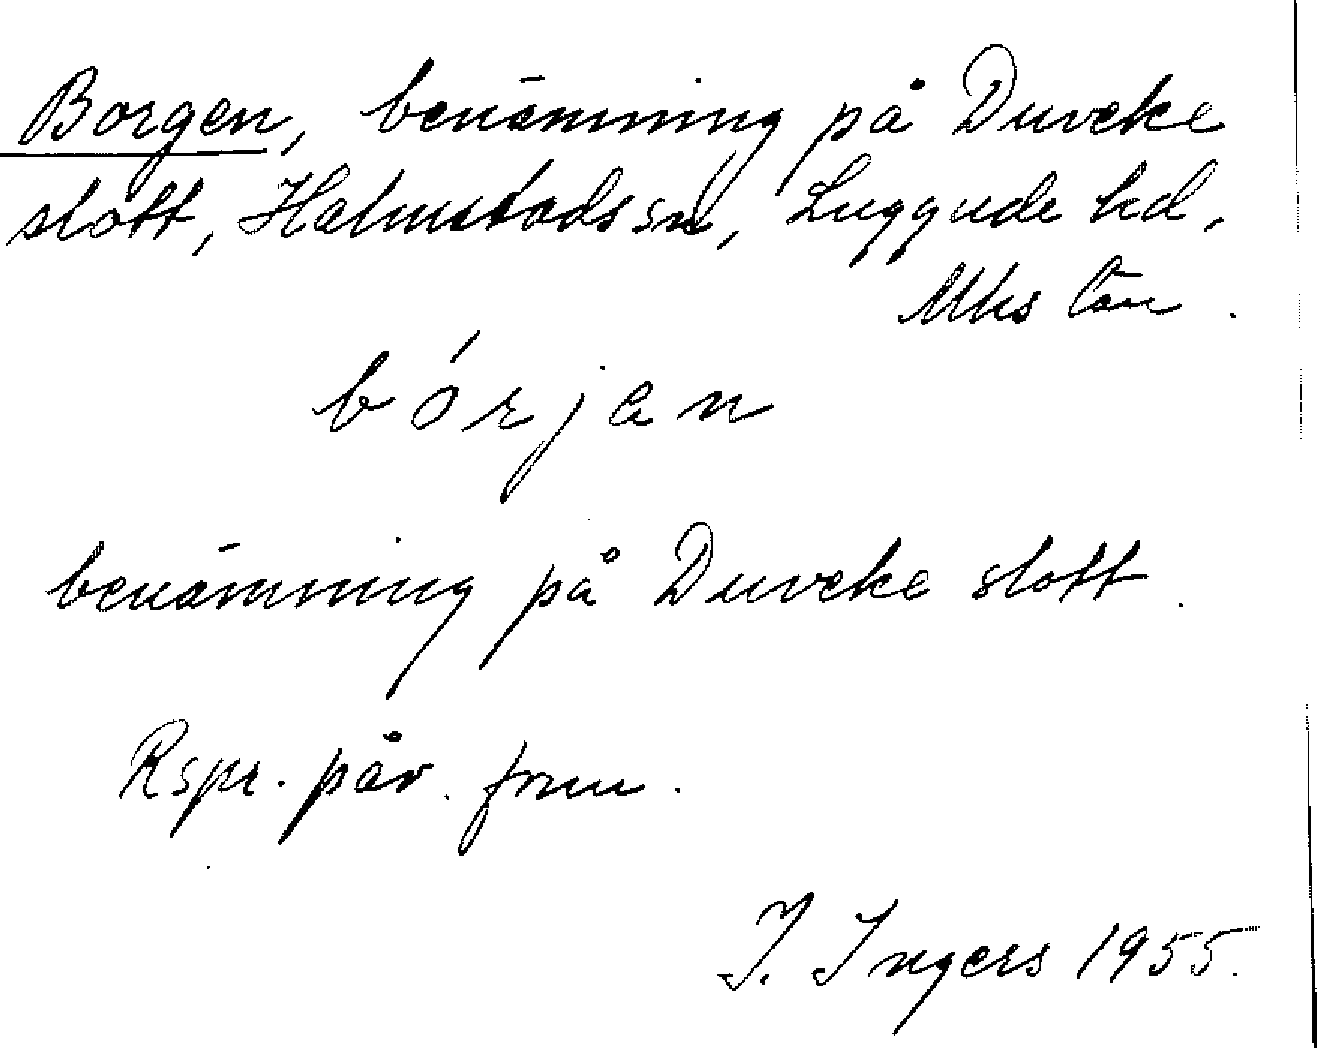 Borgen, benämning på Duveke
slott, Halmstads sn, Luggude hd,
Mhs län.
bórjan
benämning på Duveke slott.
Rspr. påv. form.
I. Ingers 1955.